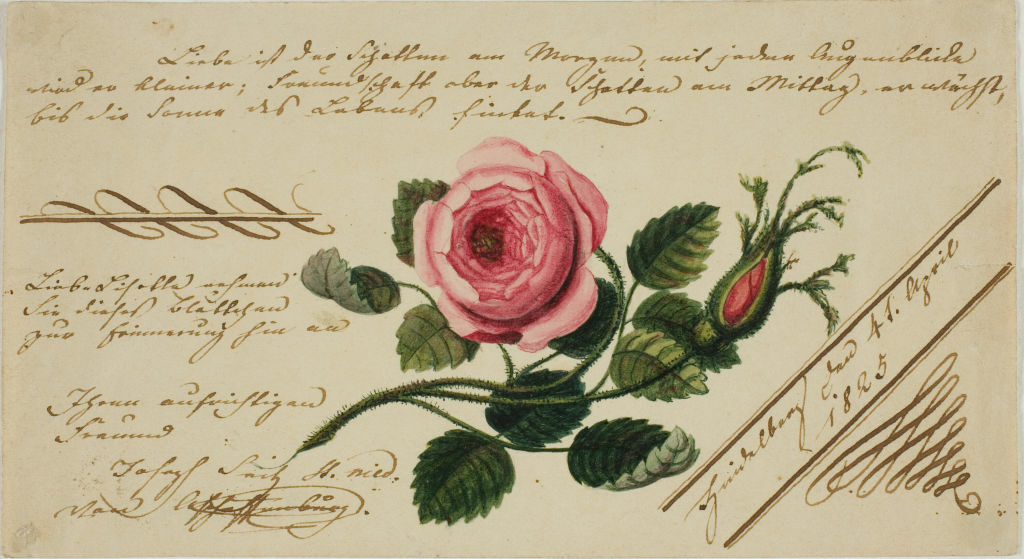 Liebe ist der Schatten am Morgen, mit jedem Augenblicke
wird er kleiner; Freundschaft aber der Schatten am Mittag, er wächst,
bis die Sonne des Lebens sinket.
Liebe Lisette nehmen
Sie dieses Blättchen
zur Erinnerung hin an
Ihren aufrichtigen
Freund
Joseph
von Aschaffenburg.
Heidelberg den 4t. April
1825